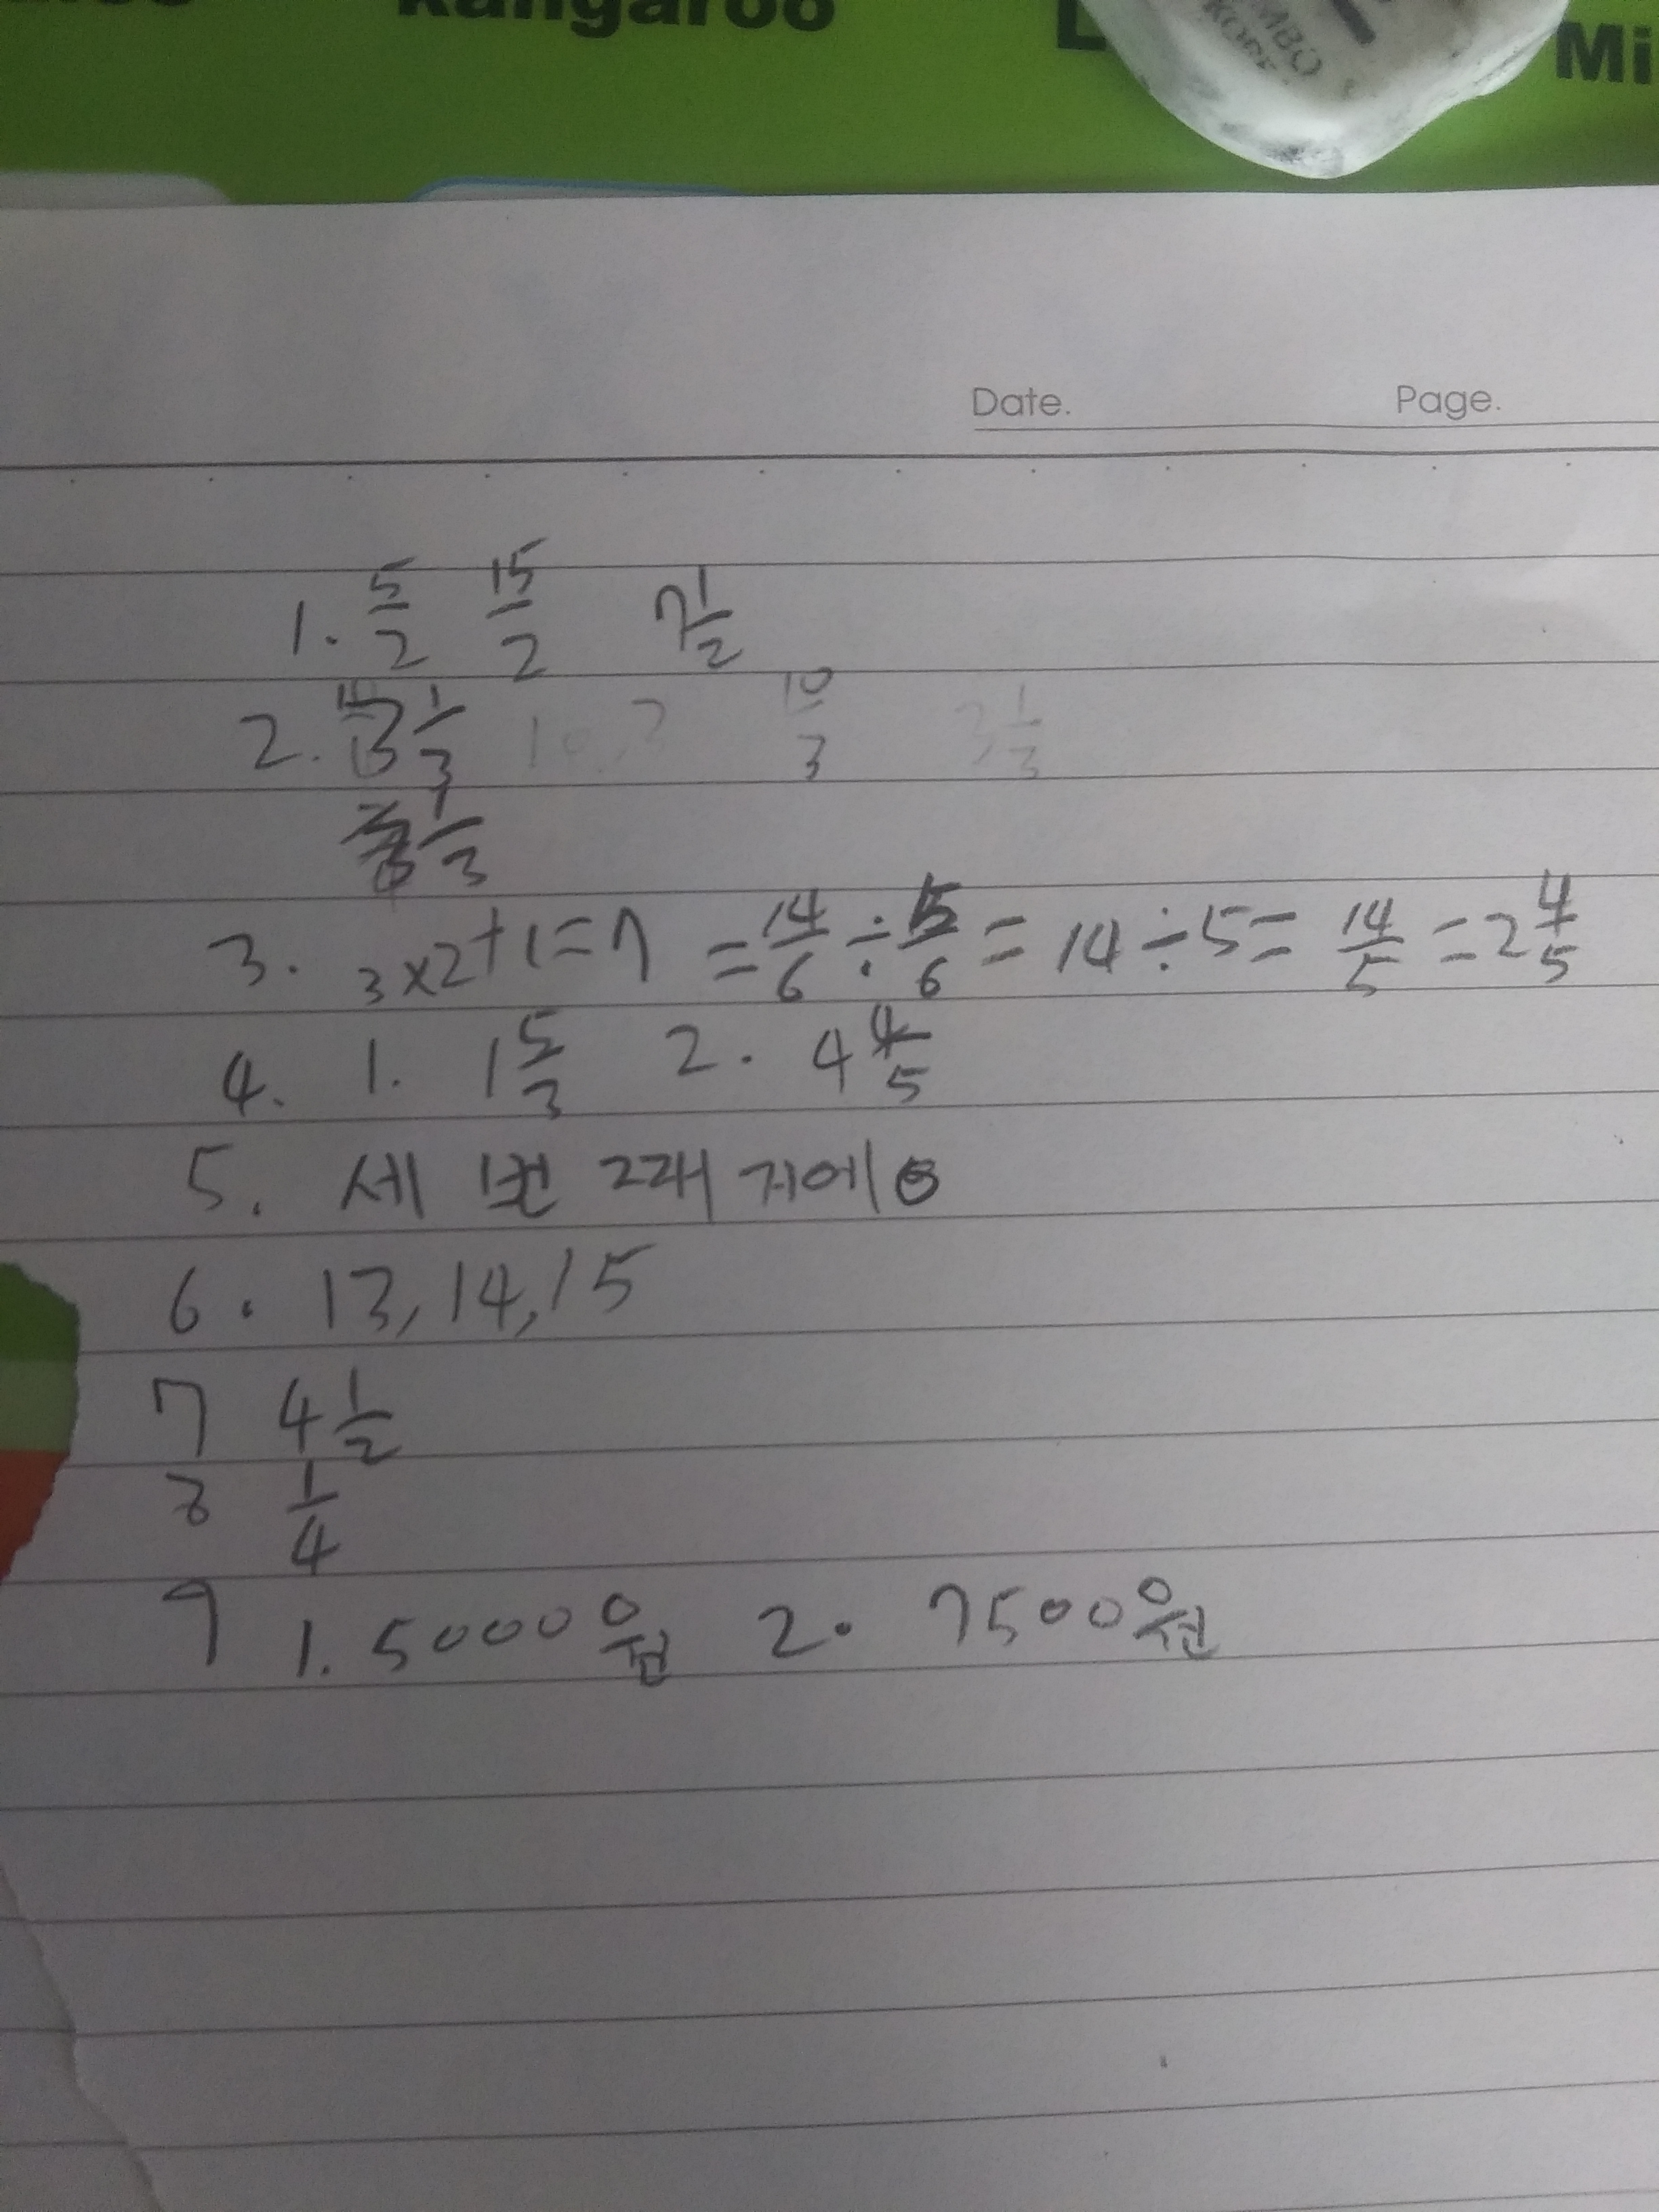 kangaroo
Mi
Date. Page.
1. 5/2 15/2 7 1/2
2. 3 1/3 10/3 3 1/3
1/3
3. 3×2+1=7 =14/6÷5/6=14÷5=14/5=2 4/5
4. 1. 1 5/3 2. 4 4/5
5. 세 번째
6. 13,14,15
7 4 1/2
8 1/4
9 1. 5000원 2. 7500원